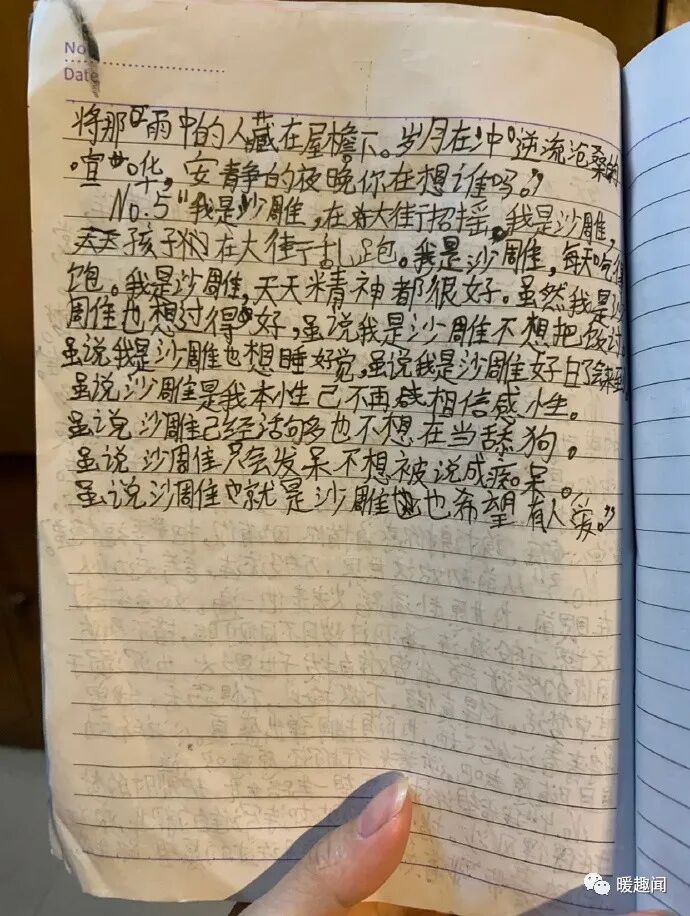 No
Date
将那雨中的人藏在屋檐下。岁月在冲逆流沧桑的
喧华,安静的夜晚你在想谁吗。”
No.5“我是沙雕,在大街招摇。我是沙雕,
孩子们在大街乱跑。我是沙雕,每天吃得
饱。我是沙雕,天天精神都很好。虽然我是沙
雕也想过得好,虽说我是沙雕不想把饭讨。
虽说我是沙雕也想睡好觉,虽说我是沙雕好日子会来到
虽说沙雕是我本性已不再相信感性。
虽说沙雕已经活够多也不想在当舔狗。
虽说沙雕只会发呆不想被说成痴呆。
虽说沙雕也就是沙雕也希望有人爱。”
暖趣闻